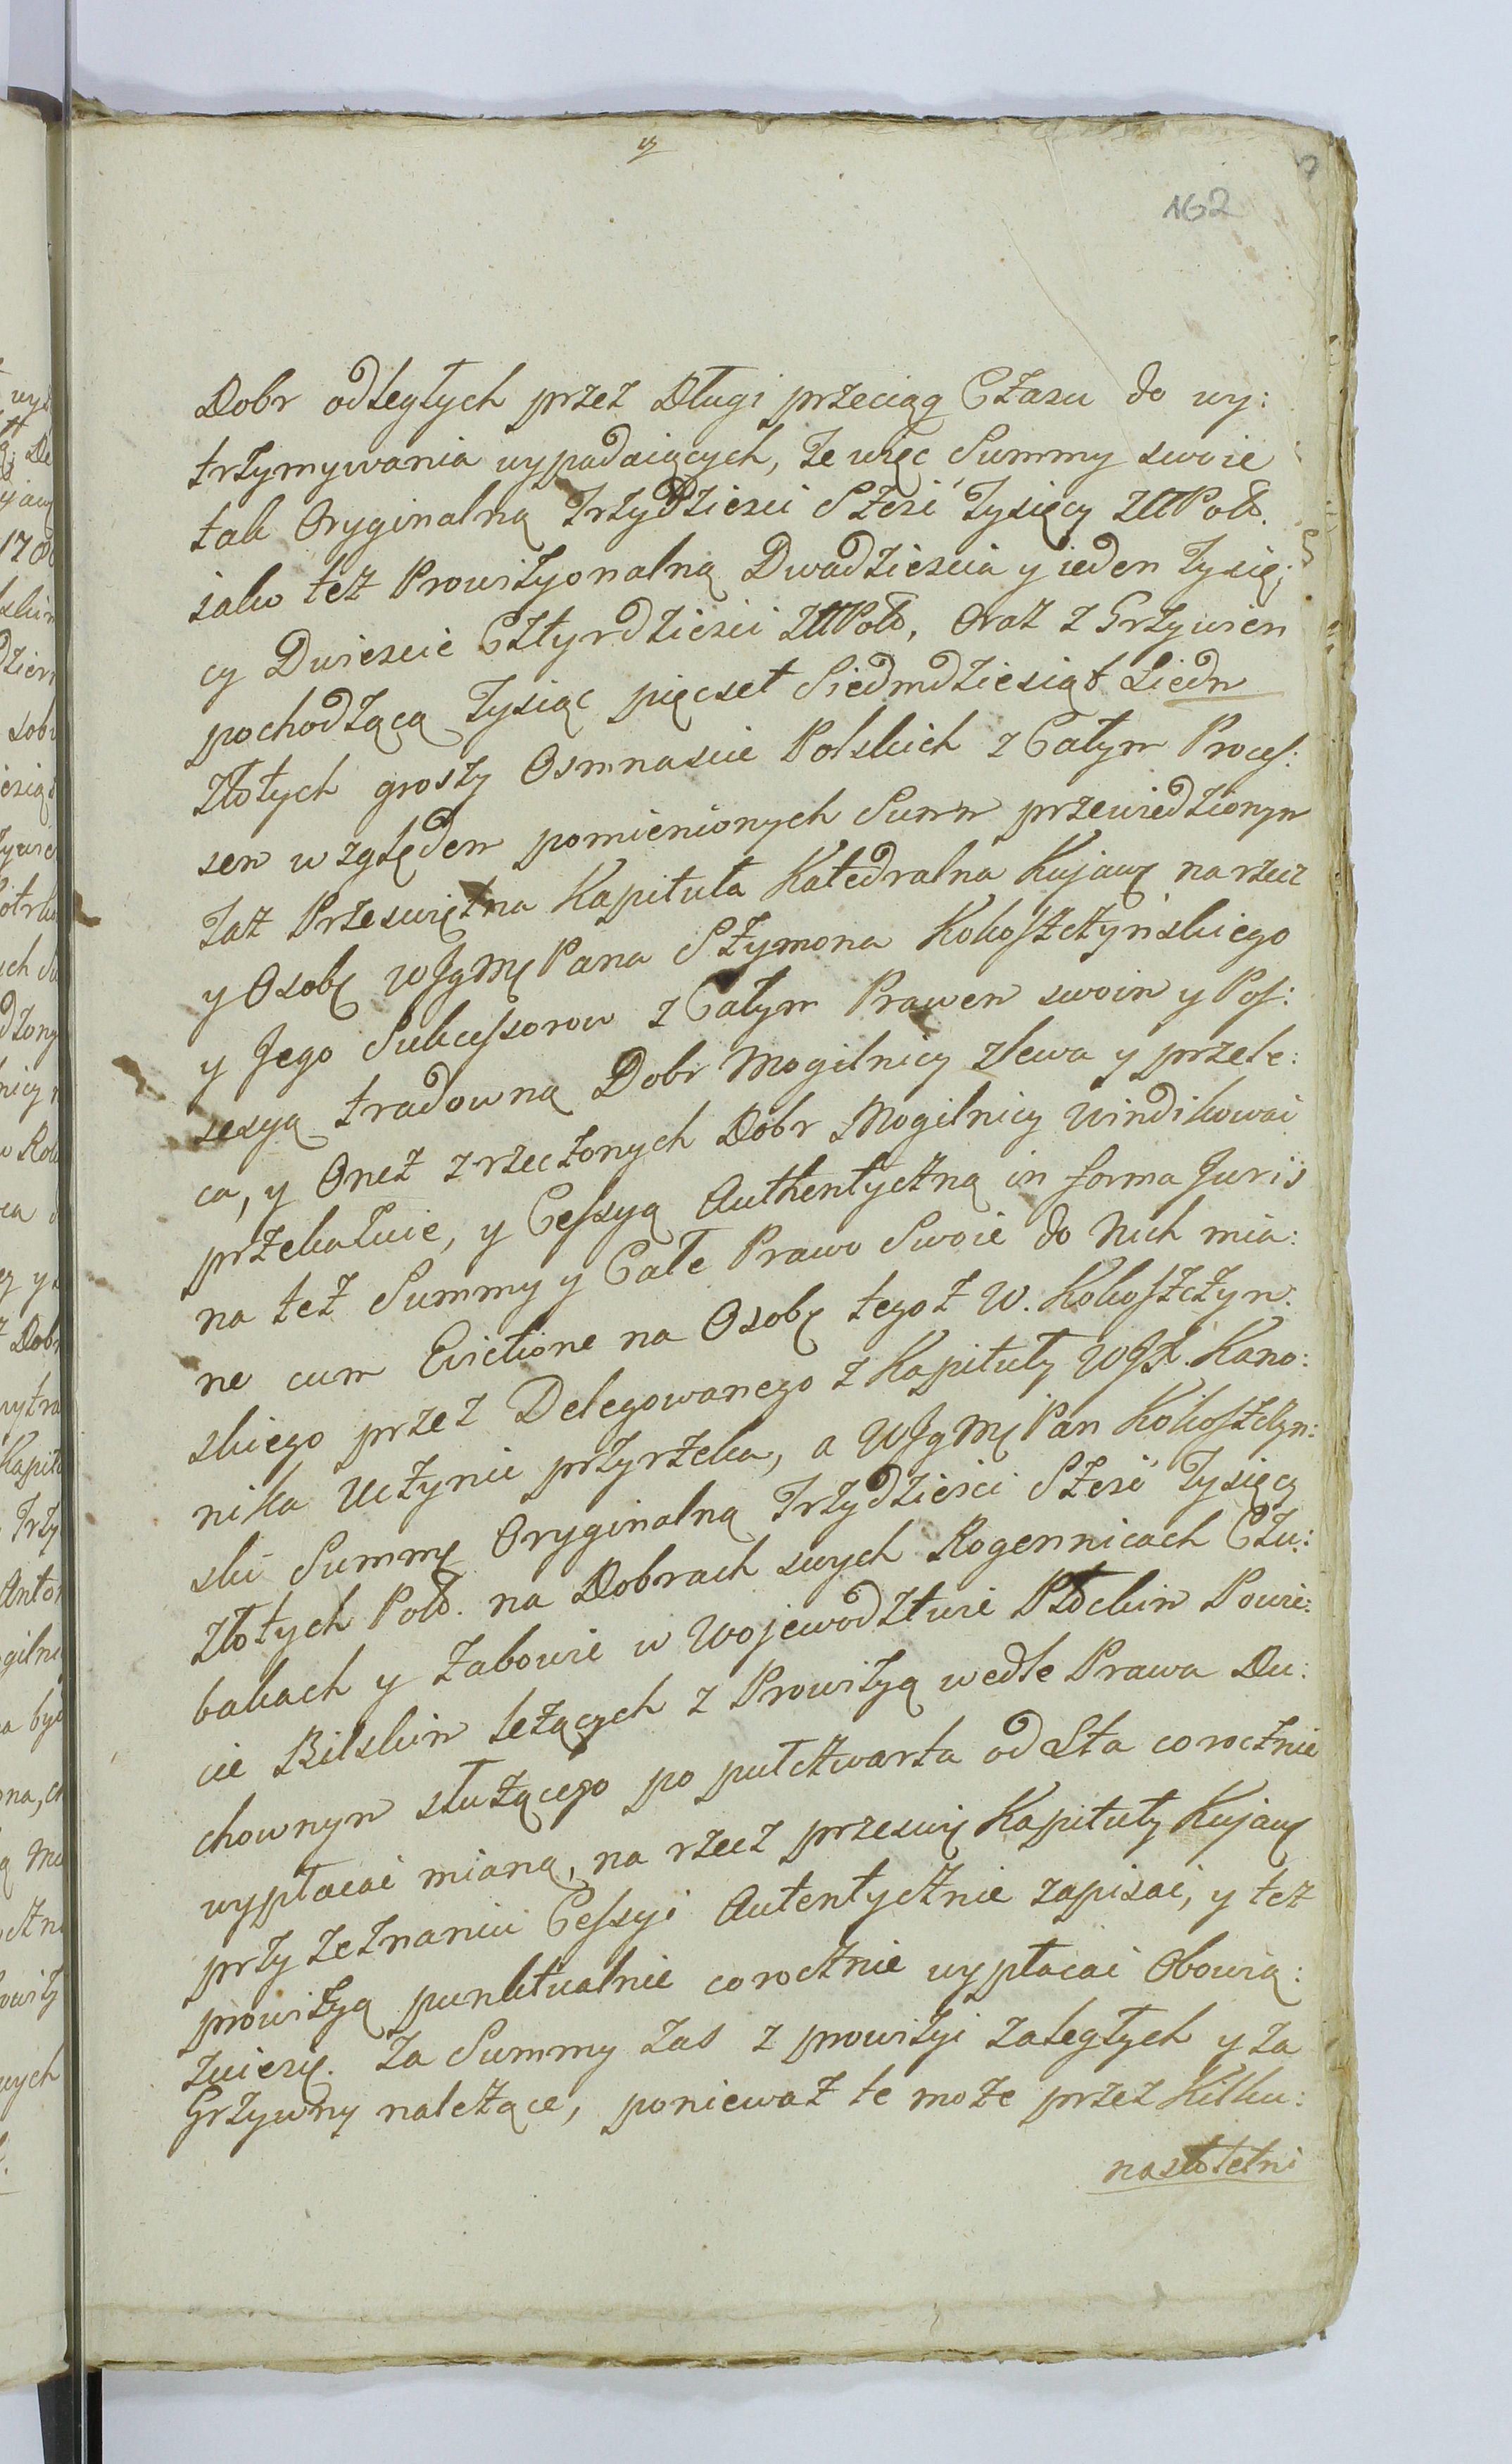 162
Dobr odległych przez Długi przeciąg Czasu do wy:
trzymywania wypadaiących, że więc Summy swoie
tak Oryginalną Trzydziesci Szesć Tysięcy ZłłPols.
iako też Prowizyonalną Dwadziescia y ieden Tysię:
cy Dwiescie Cztyrdziesci ZłłPols, Oraz z Grzywien
pochodzącą Tysiąc pięcset Siedmdziesiąt Siedm
Złotych groszy Osmnascie Polskich z Całym Proces:
sem względem pomienionych Summ przewiedzionym
Taż Przeswiętna Kapituła Katedralna Kujawę na rzecz
y Osobę WJgMę Pana Szymona Kokoszczyńskiego
y Jego Sukcessorow z Całym Prawem swoim y Pos:
sesyą tradowną Dobr Mogilnicy zlewa y przele:
ca, y Oneż z rzeczonych Dobr Mogilnicy windikować
przekazuie, y Cessyą Authentyczną in forma Juris
na też Summy y Całe Prawo Swoie do Nich mia:
ne cum Evictione na Osobę tegoż W. Kokoszczyn:
skiego przez Delegowanego z Kapituły WJX. Kano:
nika Uczynić przyrzeka, a WJgMę Pan Kokoszczyn:
ski Summę Oryginalną Trzydziesci Szesć Tysięcy
Złotych Pols. na Dobrach swych Rogennicach Czu:
bakach y Zabowie w Wojewodztwie Płockim Powie:
cie Bilskim leżących z Prowizyą wedle Prawa Du:
chownym służącego po pułczwarta od Sta corocznie
wypłacać mianą, na rzecz przeswię Kapituły Kujawę
przy zeznaniu Cessyi Autentycznie zapisać, y też
prowizyą punktualnie corocznie wypłacać Obowią:
zuiesię. Za Summy zas z prowizyi zaległych y za
Grzywny należące, ponieważ te może przez Kilku:
nastoletni